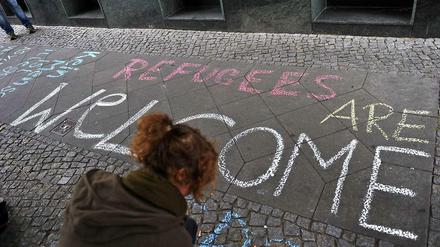 REFUGEES
ARE
WELCOME
Kein